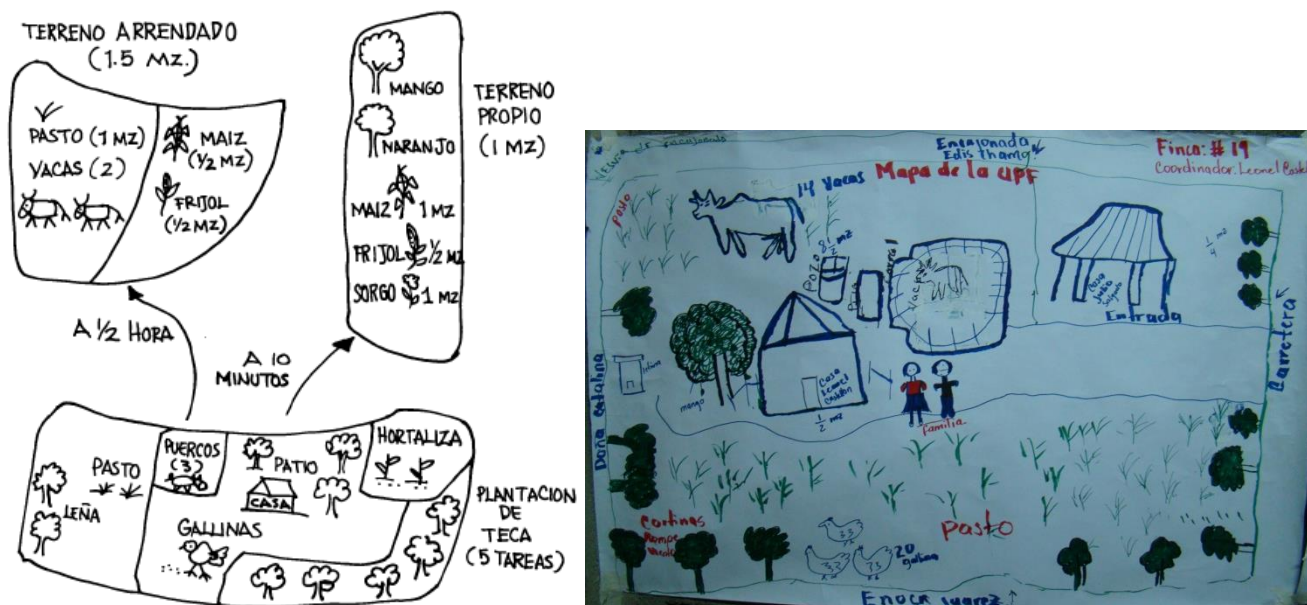 TERRENO ARRENDADO
(1.5 MZ.)
PASTO (1 MZ)
VACAS (2)
MAIZ
(1/2 MZ)
FRIJOL
(1/2 MZ)
MANGO
NARANJO
MAIZ 1 MZ
FRIJOL 1/2 MZ
SORGO 1 MZ
TERRENO
PROPIO
(1 MZ)
A 1/2 HORA
A 10
MINUTOS
PASTO
LEÑA
PUERCOS
(3)
PATIO
CASA
GALLINAS
HORTALIZA
PLANTACION
DE
TECA
(5 TAREAS)
Encajonada
Edis thamo
Finca: # 19
Coordinador: Leonel
Mapa de la UPF
14 Vacas
Pasto
8 1/2 mz
POZO
Corral
Casa
Entrada
1/4 mz
Carretera
Doña Catalina
mango
Casa
Leonel
1/2 mz
Familia
Cortinas
Rompe
Pasto
20
Enock Juarez